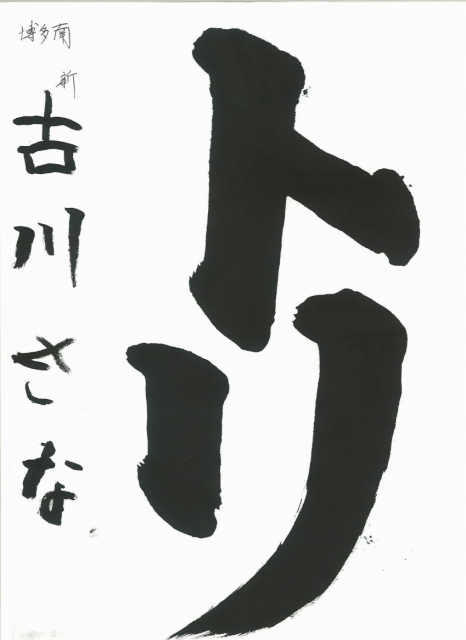 トリ
博多南
新
古川さな